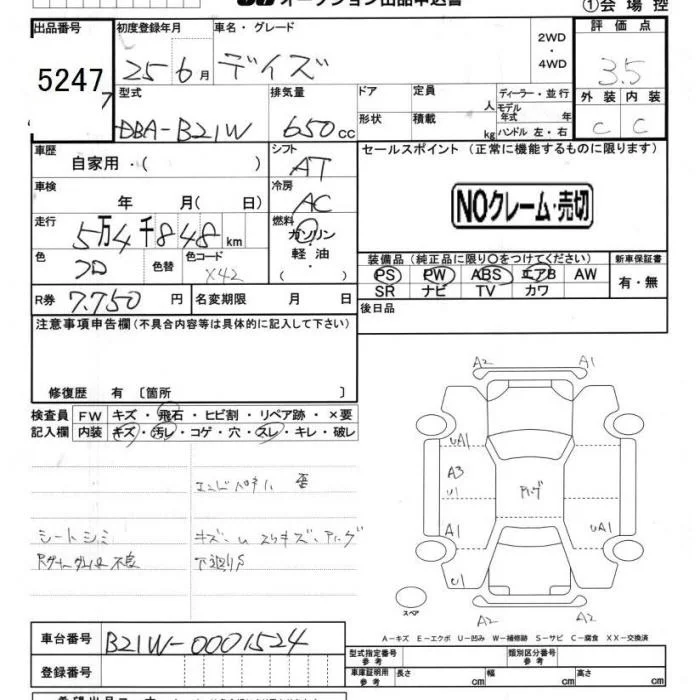 オークション出品申込書 ①会場控
出品番号 初度登録年月 車名・グレード 2WD・4WD 評価点
5247 25年6月 デイズ 3.5
型式 排気量 ドア 定員 人 ディーラー・並行 外装 内装
DBA-B21W 650cc 形状 積載 kg モデル年式 年 ハンドル 左・右 C C
車歴 自家用・( ) シフト AT セールスポイント (正常に機能するものに限ります)
車検 年 月( 日) 冷房 AC NOクレーム・売切
走行 5万4千848km 燃料 ガソリン・軽油・( )
色 クロ 色替 色コード X42 装備品(純正品に限り○をつけてください) 新車保証書
PS PW ABS エアB AW 有・無
SR ナビ TV カワ
R券 7.750円 名変期限 月 日 後日品
注意事項申告欄(不具合内容等は具体的に記入して下さい)
修復歴 有 〔箇所 〕
検査員 FW キズ・飛石・ヒビ割・リペア跡・×要
記入欄 内装 キズ・汚レ・コゲ・穴・スレ・キレ・破レ
A2 A1
UA1
A3
U1
A1 UA1
U1
A2 A2
シートシミ
下廻りS
スペア
A-キズ E-エクボ U-凹み W-補修跡 S-サビ C-腐食 XX-交換済
車台番号 B21W-0001524
登録番号
型式指定番号 参考 類別区分番号 参考
車庫証明用 参考 長さ cm 幅 cm 高さ cm